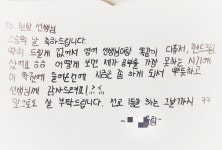 To. 현정 선생님
스승의 날 축하드립니다.
딱히 드릴게 없어서 영어 선생님이랑 똑같이 다쥬서, 핸드크림
샀어요 ㅎㅎ 어떻게 보면 제가 공부를 가장 못하는 시기에
이 학원에 들어왔는데 시즌은 좀 하게 되서 뿌듯하고
선생님께 감사드려요! ><
앞으로도 잘 부탁드립니다. 전교 1등을 하는 그날까지 ㅋㅋ